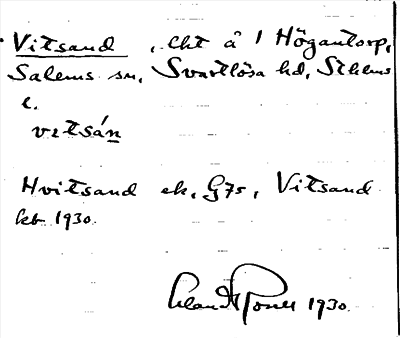 Vitsand, lht å 1 Högantorp,
Salems sn, Svartlösa hd, Sthlms
l.
vɩtsán
Hvitsand ek, G75, Vitsand
kb 1930.
1930.